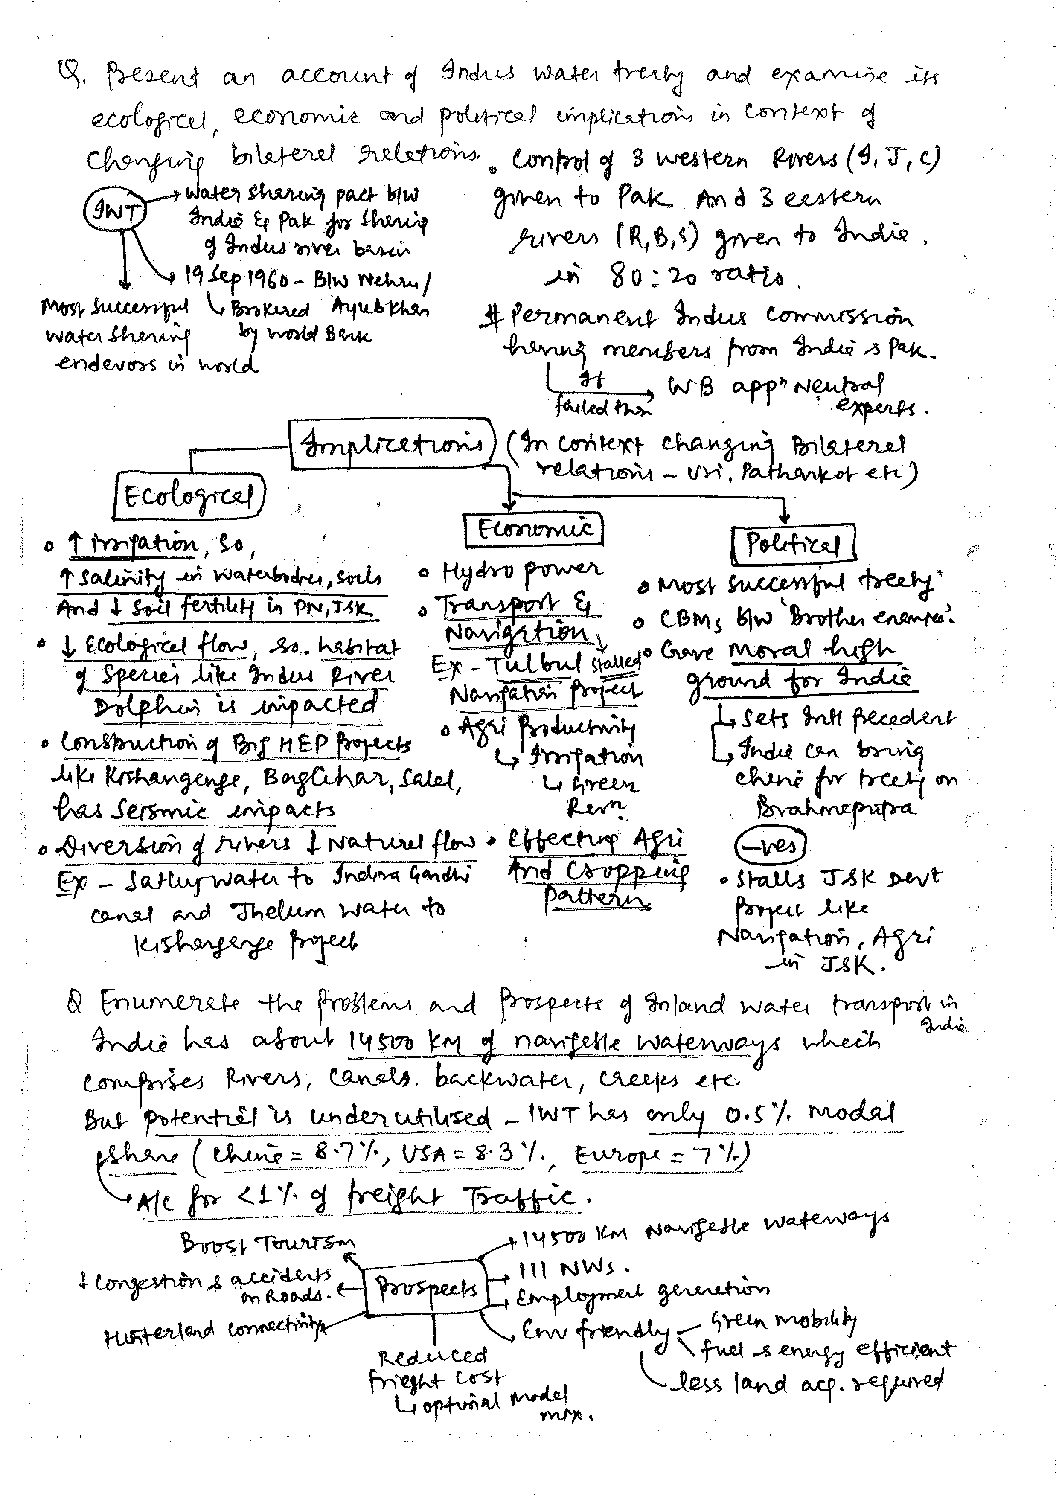 Q. Present an account of Indus water treaty and examine its
ecological, economic and political implications in context of
changing bilateral relations.
IWT
→ Water sharing pact b/w
India & Pak for sharing
of Indus river basin
→ 19 Sep 1960 - B/w Nehru/
Ayub Khan
↳ Brokered
by World Bank
Most successful
water sharing
endevors in world
• Control of 3 western Rivers (I, J, C)
given to Pak And 3 eastern
rivers (R, B, S) given to India.
in 80:20 ratio.
# Permanent Indus Commission
having members from India & Pak.
If
failed then
→ WB app" Neutral
experts.
Implications (In context changing Bilateral
relations - Uri, Pathankot etc)
Ecological
• ↑ Irrigation, So,
↑ Salinity in waterbodies, soils
And ↓ soil fertility in PN, J&K
• ↓ Ecological flow, so. habitat
of species like Indus River
Dolphin is impacted
• Construction of Big HEP projects
like Kishangange, Baglihar, Salal,
has seismic impacts
• Diversion of rivers ↓ Natural flow
Ex - Satluj water to Indira Gandhi
canal and Jhelum water to
Kishangange project
Economic
• Hydro power
• Transport &
Navigation
Ex - Tulbul stalled
Navigation project
• Agri Productivity
↳ Irrigation
↳ Green
Revn.
• Effecting Agri
And Cropping
Pattern
Political
• Most successful treaty
• CBMs b/w 'Brother enemies'.
• Gave moral high
ground for India
↳ Sets Intl precedent
↳ India can bring
china for treaty on
Brahmaputra
-ves
• Stalls J&K Devt
project like
Navigation, Agri
in J&K.
Q Enumerate the problems and prospects of Inland water transport in
India
India has about 14500 KM of navigable waterways which
comprises Rivers, Canals. backwater, creeks etc.
But potential is underutilised - IWT has only 0.5% modal
share (China = 8.7%, USA = 8.3%, Europe = 7%)
→ A/c for <1% of freight Traffic.
Prospects
Boost Tourism
↓ Congestion & accidents
on Roads.
Hinterland connectivity
Reduced
frieght cost
↳ optimal modal
mix.
→ 14500 KM Navigable waterways
→ 111 NWs.
→ Employment generation
→ Env friendly
Green mobility
fuel & energy efficient
less land acq. required